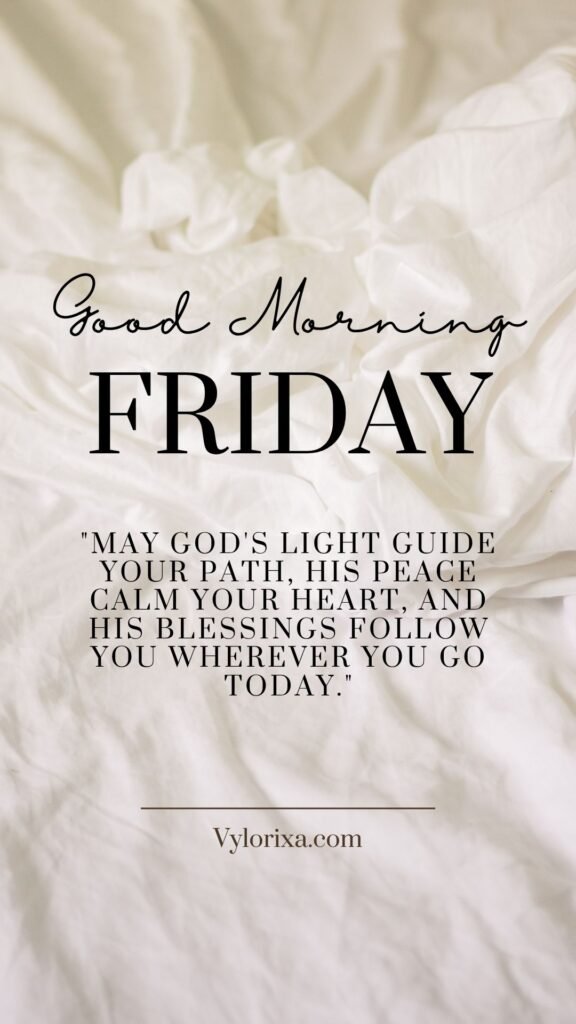 Good Morning
FRIDAY
"MAY GOD'S LIGHT GUIDE
YOUR PATH, HIS PEACE
CALM YOUR HEART, AND
HIS BLESSINGS FOLLOW
YOU WHEREVER YOU GO
TODAY."
Vylorixa.com